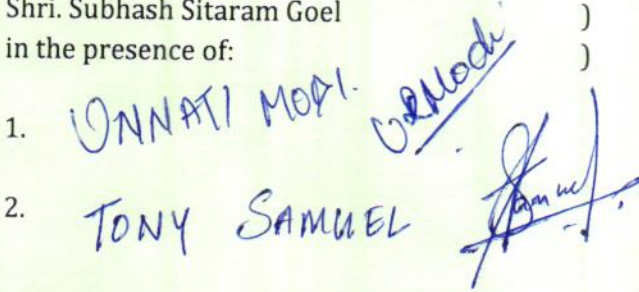 Shri. Subhash Sitaram Goel )
in the presence of: )
1. UNNATI MODI. URModi
2. TONY SAMUEL Samuel